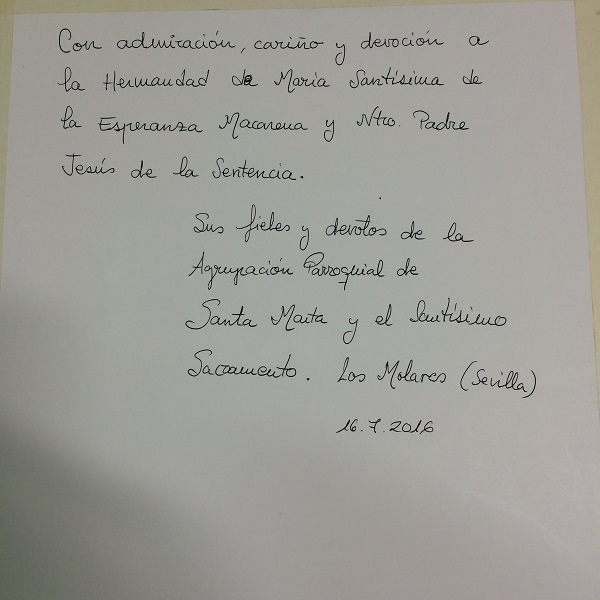 Con admiración, cariño y devoción a
la Hermandad de María Santísima de
la Esperanza Macarena y Ntro. Padre
Jesús de la Sentencia.
Sus fieles y devotos de la
Agrupación Parroquial de
Santa Marta y el Santísimo
Sacramento. Los Molares (Sevilla)
16.7.2016